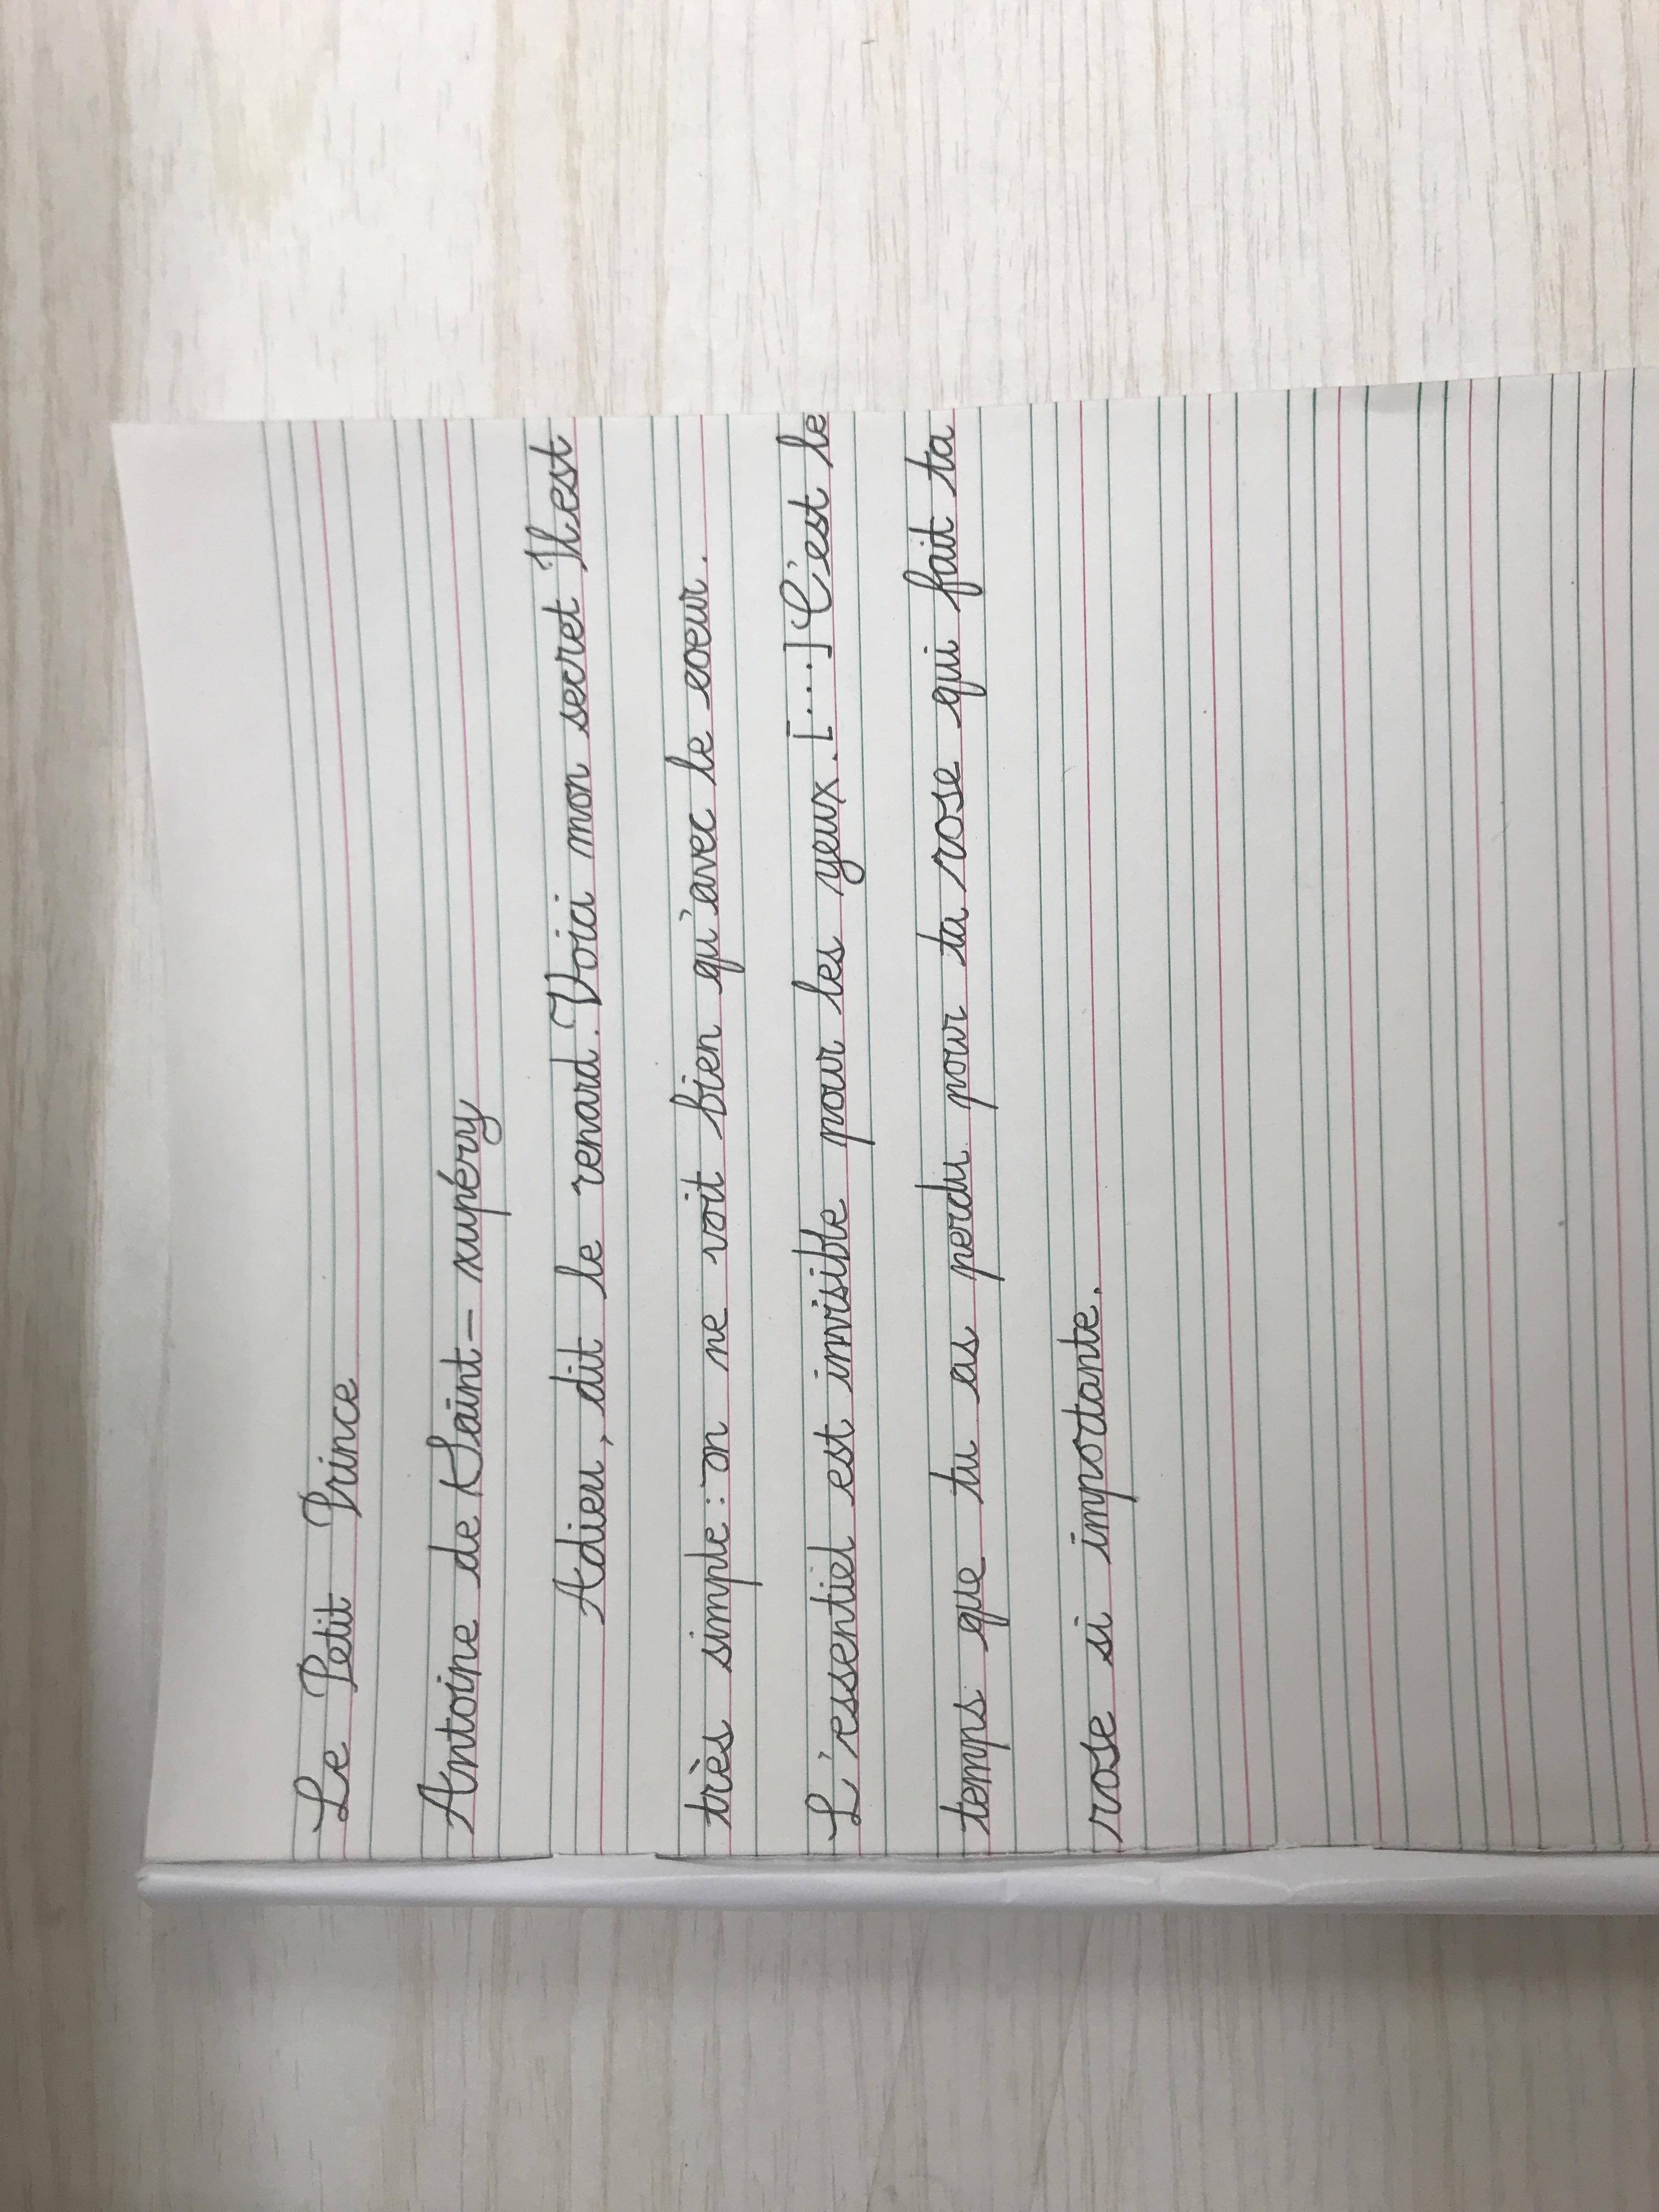 Le Petit Prince
Antoine de Saint- xupéry
Adieu, dit le renard. Voici mon secret Il est
très simple : on ne voit bien qu'avec le coeur.
L'essentiel est invisible pour les yeux. [...] C'est le
temps que tu as perdu pour ta rose qui fait ta
rose si importante.